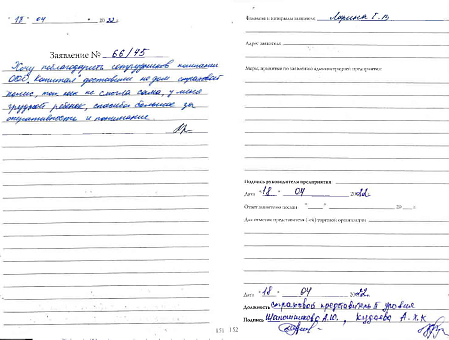 "18" 04 2022
Заявление № 66/45
Хочу поблагодарить сотрудников компании
ООО "Капитал" доставили на дом страховой
полис, так как не смогла сама, у меня
грудной ребёнок, спасибо большое за
оперативность и понимание.
Фамилия и инициалы заявителя Ларина Т.В.
Адрес заявителя
Меры, принятые по заявлению администрацией предприятия:
Подпись руководителя предприятия
Дата "18" 04 2022
Ответ заявителю послан " " 20 г.
Для отметок представителя (-ей) торговой организации
Дата "18" 04 2022
Должность страховой представитель II уровня
Подпись Шапошникова А.Ю.,
151 152